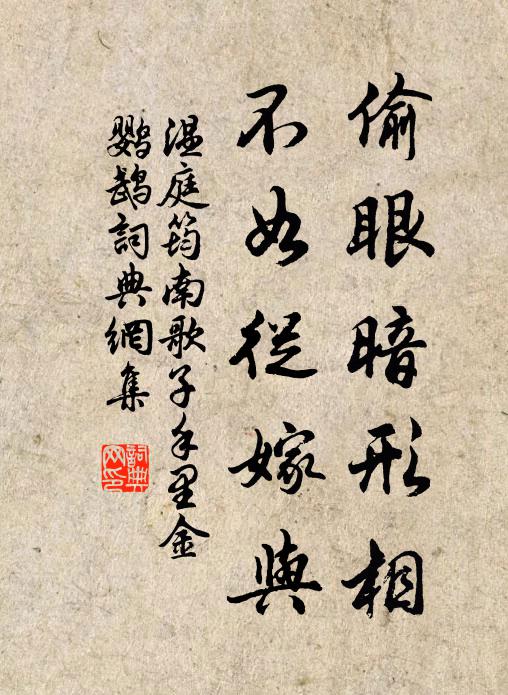 偷眼暗形相
不如從嫁與
温庭筠南歌子手里金
鸚鵡詞典網集
詞典
网印